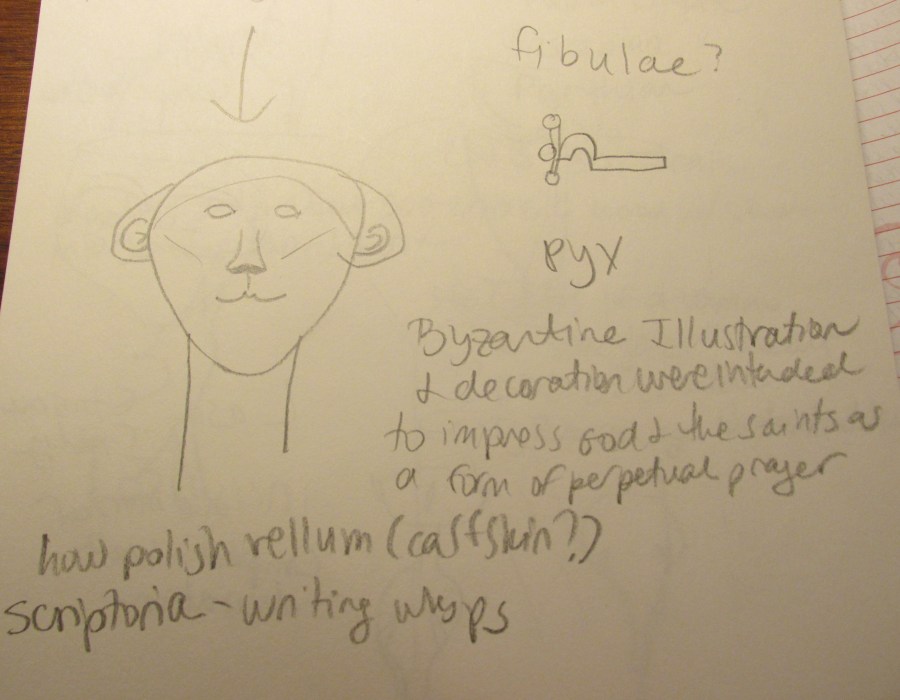 fibulae?
pyx
Byzantine Illustration
& decoration were intended
to impress God & the saints as
a form of perpetual prayer
how polish vellum (calfskin?)
scriptoria - writing wksps